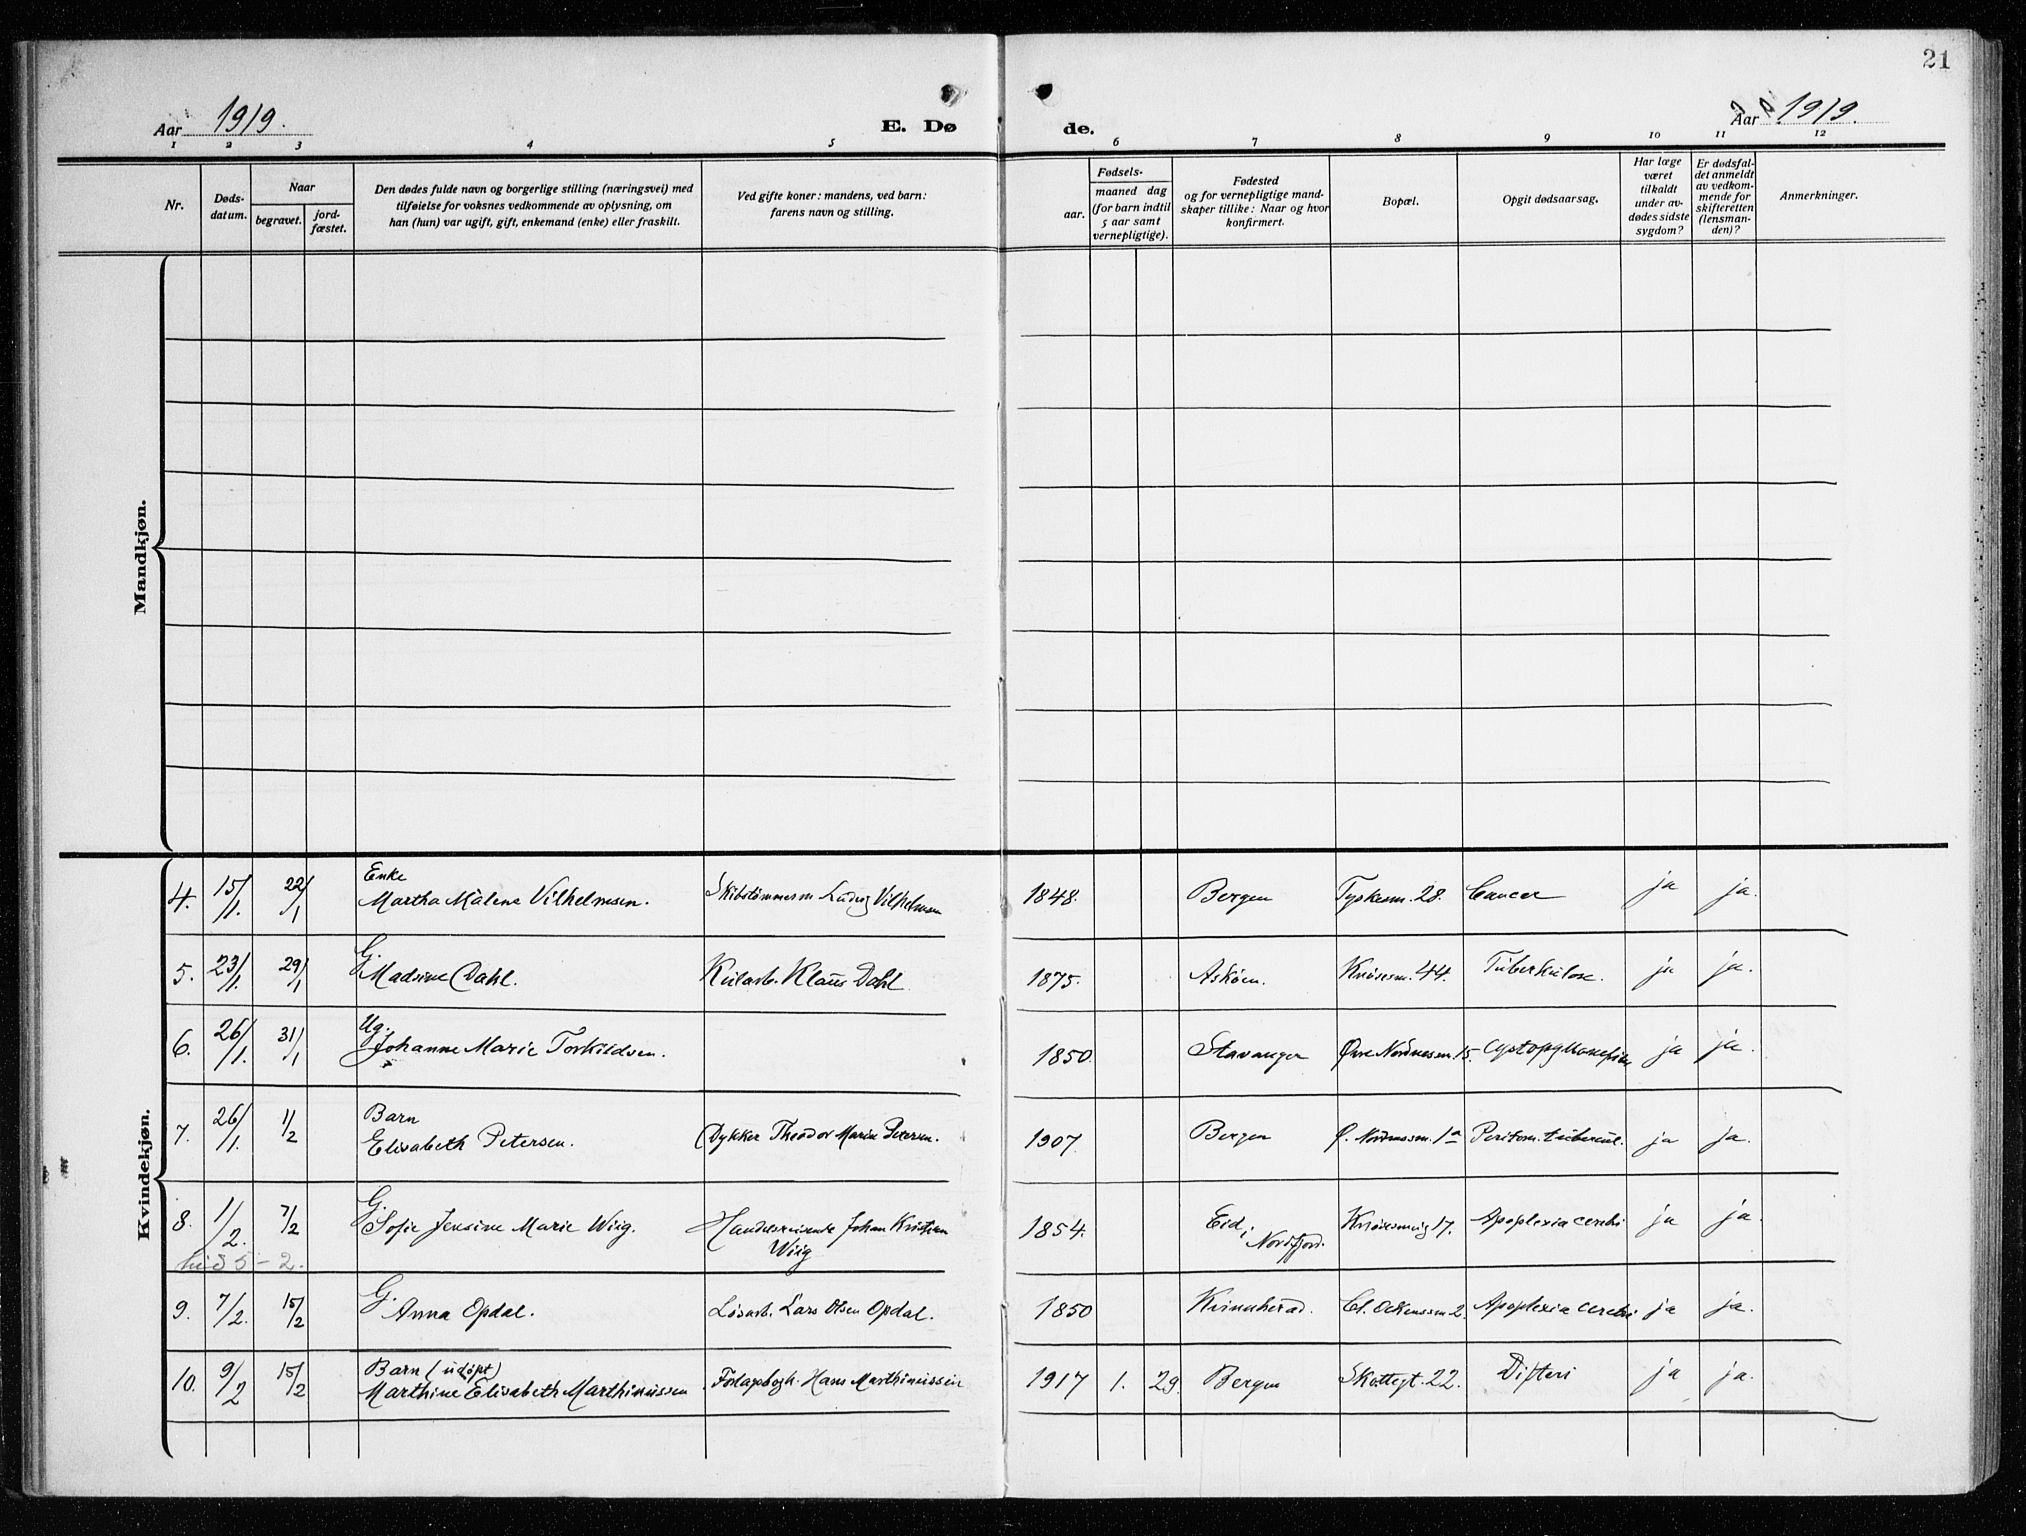 21
Aar 1919.
E. Dø
de.
Aar 1919.
1 2 3 4 5 6 7 8 9 10 11 12
Nr.
Døds-
datum.
Naar
begravet.
jord-
fæstet.
Den dødes fulde navn og borgerlige stilling (næringsvei) med
tilføielse for voksnes vedkommende av oplysning, om
han (hun) var ugift, gift, enkemand (enke) eller fraskilt.
Ved gifte koner: mandens, ved barn:
farens navn og stilling.
Fødsels-
aar.
maaned dag
(for barn indtil
5 aar samt
vernepligtige).
Fødested
og for vernepligtige mand-
skaper tillike: Naar og hvor
konfirmert.
Bopæl.
Opgit dødsaarsag.
Har læge
været
tilkaldt
under av-
dødes sidste
sygdom?
Er dødsfal-
det anmeldt
av vedkom-
mende for
skifteretten
(lensman-
den)?
Anmerkninger.
Mandkjøn.
Kvindekjøn.
Enke
4. 15/1. 22/1 Martha Malene Vilhelmsen. Skibstømmerm Ludvig Vilhelmsen 1848. Bergen Tyskesm. 28. Cancer ja ja.
G.
5. 23/1. 29/1 Madsine Dahl. Klaus Dahl 1875. Askøen. Knøsesm. 44. Tuberkulose. ja ja.
Ug.
6. 26/1. 31/1 Johanne Marie Torkildsen. 1850 Stavanger Øvre Nordnessm. 15. ja ja.
Barn
7. 26/1. 1/2 Elisabeth Petersen. Dykker Theodor Marin Petersen. 1907 Bergen Ø. Nordnessm. 1a Periton. tubercul. ja ja.
G.
8. 1/2. 7/2 Sofie Jensine Marie Wiig. Handelsreisende Johan Kristian 1854. Eid, Knøsesmug 17. Apoplexia cerebri ja ja.
Wiig Nordfjord.
5-2.
G.
9. 7/2. 15/2 Anna Opdal. Løsarb. Lars Olsen Opdal. 1850 Kvinnherad. Cl. Ockenssm 2. Apoplexia cerebri ja ja.
Barn (udøpt)
10. 9/2 15/2 Marthine Elisabeth Marthinussen Hans Marthinussen 1917 1. 29. Bergen Skottegt. 22. Difteri ja ja.